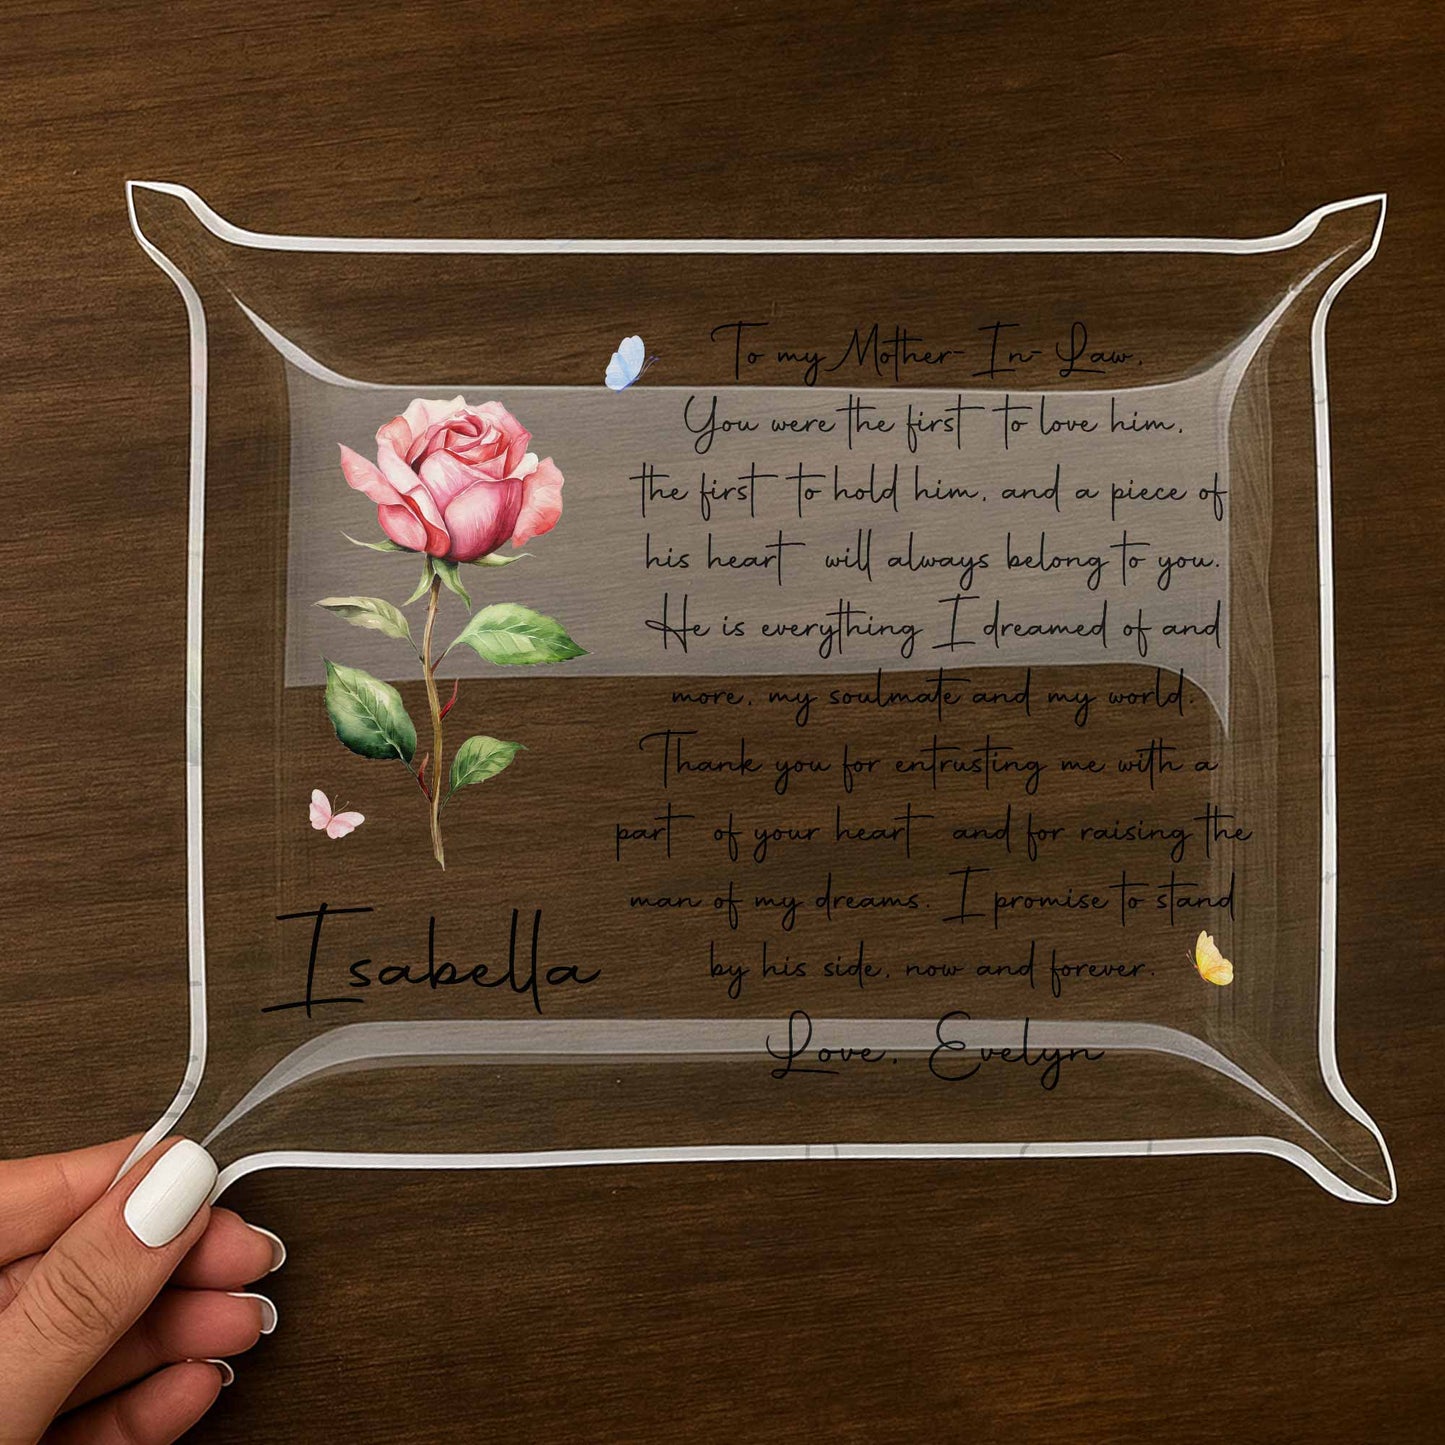 To my Mother-In-Law,
You were the first to love him,
the first to hold him, and a piece of
his heart will always belong to you.
He is everything I dreamed of and
more, my soulmate and my world.
Thank you for entrusting me with a
part of your heart and for raising the
man of my dreams. I promise to stand
by his side, now and forever.
Love, Evelyn
Isabella